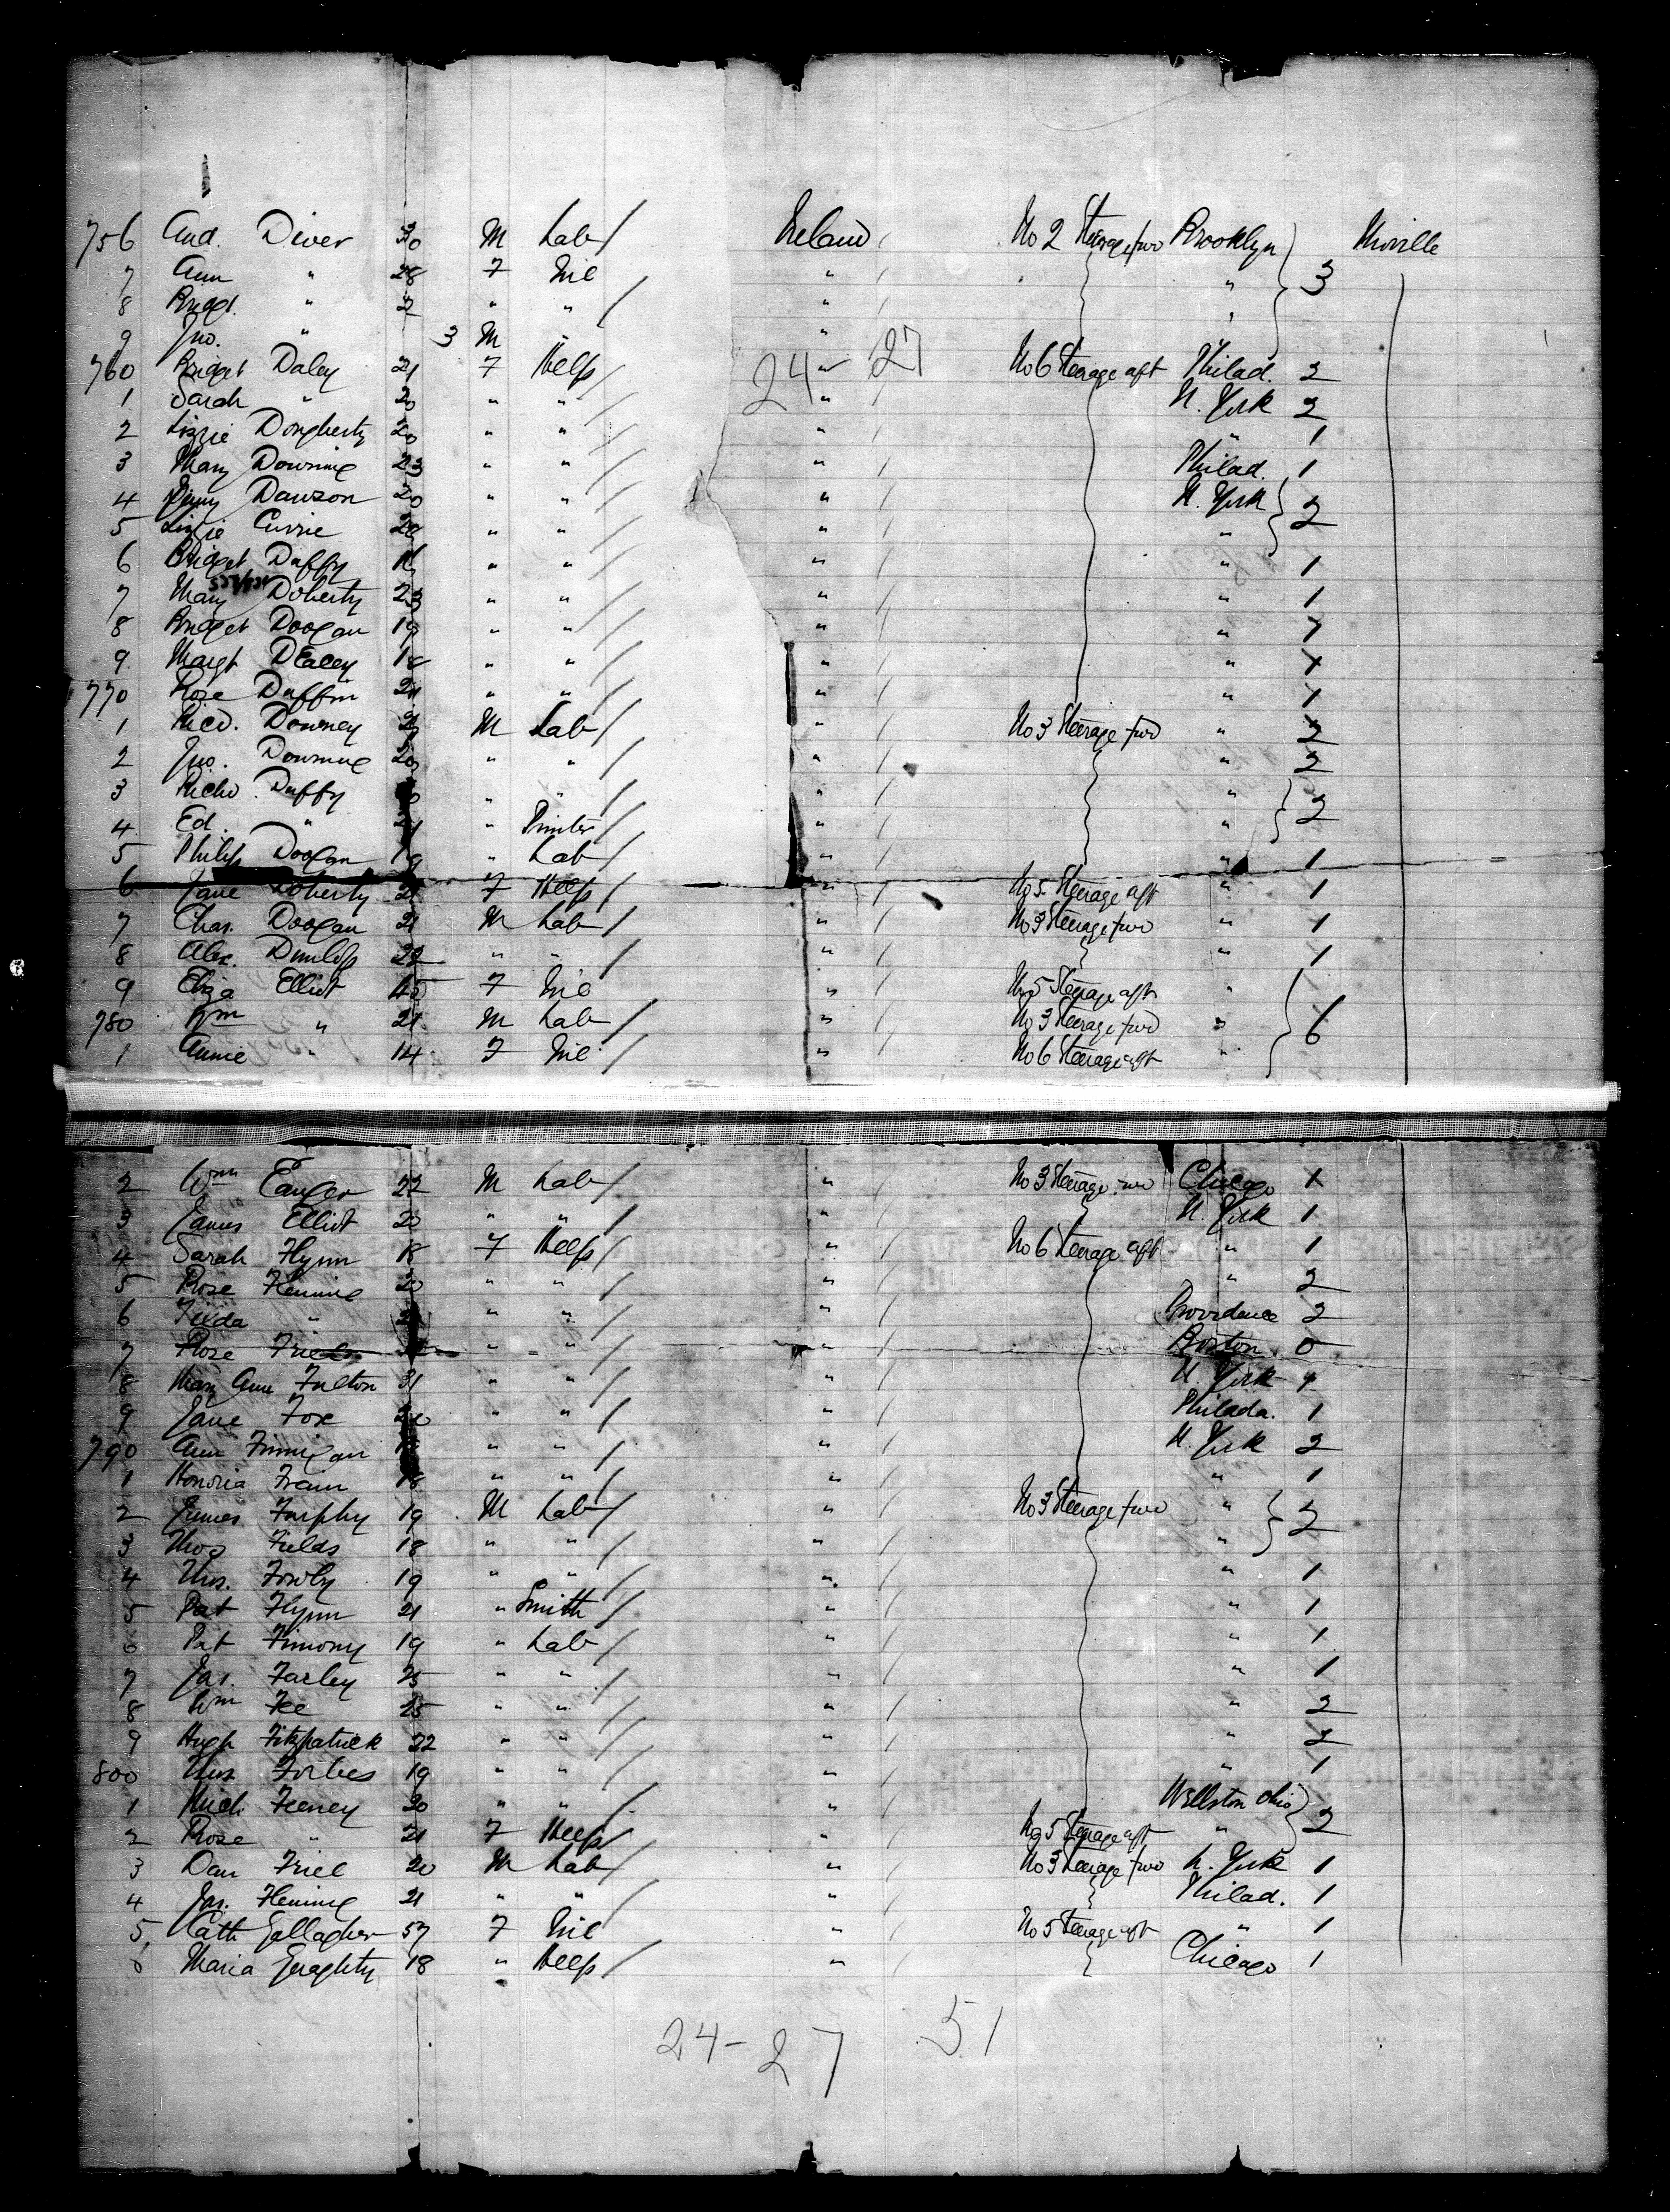 756 And. Diver 30 M Lab / Ireland / No 2 Steerage fwd Brooklyn } Moville
7 Ann " 28 F Nil " / " 3
8 Bridgt. " 2 " " / " / "
9 Jno. " 3 M " "
760 Bridget Daley 21 F Help / 24 - 27 No 6 Steerage aft Philad. 2
1 Sarah " 20 " " / " / N. York 2
2 Lizzie Dougherty 20 " " / " / " 1
3 Mary Downing 23 " " / " / Philad. 1
4 Dawson 20 " " / " / N. York } 2
5 Lizzie Currie 28 " " / " / "
6 Bridget Duffy " " / " / " 1
7 Mary Doherty 23 " " / " / " 1
8 Bridget Doogan 19 " " / " / " 1
9 Margt 18 " " / " / " 1
770 Rose Duffin " " / " / " 1
1 Ricd. Downey 21 M Lab / " / No 3 Steerage fwd " 2
2 Jno. Downing 20 " " / " / " 2
3 Richd. Duffy " " / " / " } 2
4 Ed. " " Printer / " / "
5 Philip Doogan 19 " Lab / " / " 1
6 Jane Doherty 21 F Help / " / No 5 Steerage aft " 1
7 Chas. Doogan 21 M Lab / " / No 3 Steerage fwd " 1
8 Alex. Dunlop 22 " " / " / " 1
9 Eliza Elliot 45 F Nil " / No 5 Steerage aft "
780 Wm " 21 M Lab / " / No 3 Steerage fwd " } 6
1 Annie " 14 F Nil / " / No 6 Steerage aft "
2 Wm 22 M Lab / " / No 3 Steerage fwd Chicago 1
3 James Elliot 20 " " / " / N. York 1
4 Sarah Flynn 18 F Help / " / No 6 Steerage aft " 1
5 Rose Fleming 20 " " / " / " 2
6 Tilda " " " / " / Providence 2
7 Rose Friel " " " / Boston 0
8 Mary Ann Fulton 31 " " / " / N. York 1
9 Jane Fox 20 " " / " / Philada. 1
790 Ann Finnigan " " / " / N. York 2
1 Honoria 18 " " / " / " 1
2 James Furphy 19 M Lab / " / No 3 Steerage fwd " } 2
3 Thos Fields 18 " " / " / "
4 Thos. 19 " " / " / " 1
5 Pat Flynn 21 " Smith / " / " 1
6 Pat Timony 19 " Lab / " / " 1
7 Jas. Farley 25 " " / " / " 1
8 Wm Fee 25 " " / " / " 2
9 Hugh Fitzpatrick 22 " " / " / " 2
800 Thos. Forbes 19 " " / " / " 1
1 Mich Feeney 20 " " / " / Wellston Ohio } 2
2 Rose " 21 F Help / " / No 5 Steerage aft "
3 Dan Friel 20 M Lab / " / No 3 Steerage fwd N. York 1
4 Jas. Fleming 21 " " / " / Philad. 1
5 Cath Gallagher 57 F Nil " / No 5 Steerage aft " 1
6 Maria Geraghty 18 " Help / " / Chicago 1
24 - 27 51